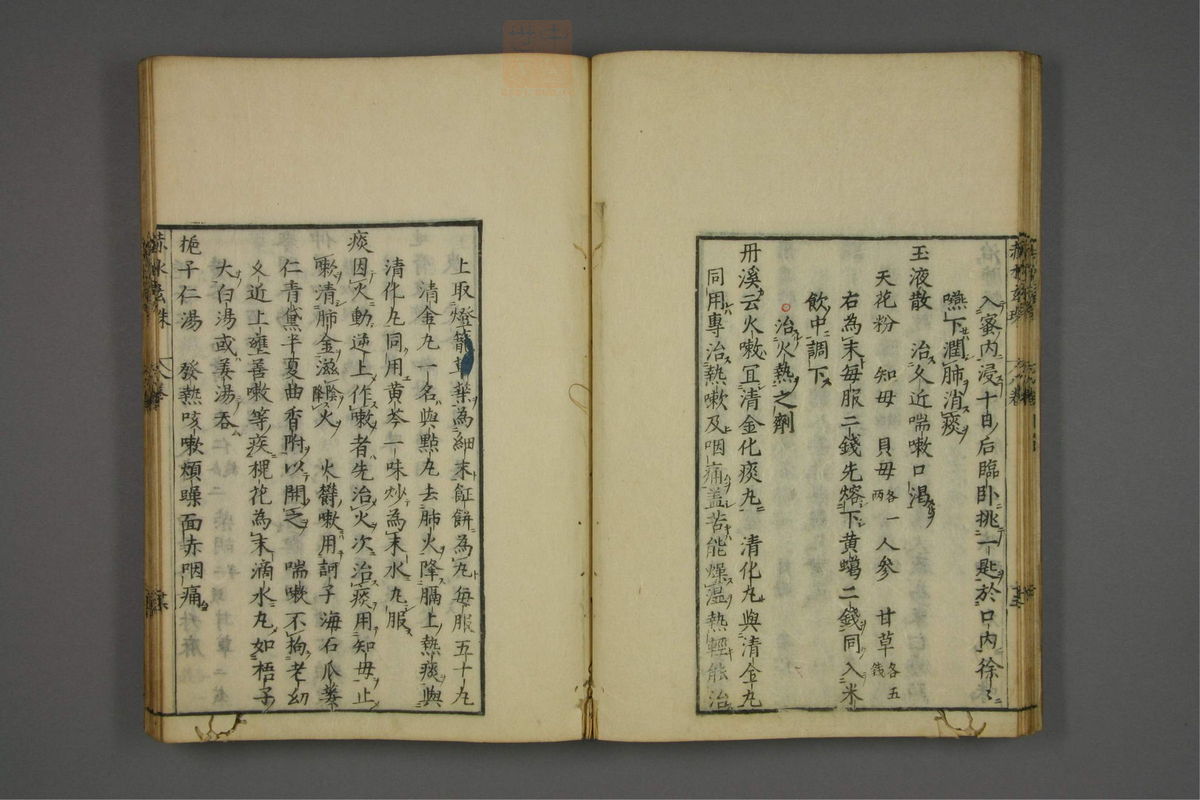 入蜜內浸十日后臨臥挑一匙於口內徐〻
嚥下潤肺消痰
玉液散 治久近喘嗽口渴
天花粉 知母 貝母各一兩 人參 甘草各五錢
右為末每服二錢先熔下黄蠟二錢同入米
飲中調下
治火熱之劑
丹溪云火嗽宜清金化痰丸 清化丸與清金丸
同用專治熱嗽及咽痛盖苦能燥湿熱輕能治
上取燈籠草葉為細末飪餅為丸每服五十丸
清金丸一名與點丸去肺火降膈上熱痰與
清化丸同用黄芩一味炒為末水丸服
痰因火動逆上作嗽者先治火次治痰用知毋止
嗽清肺金滋陰降火 火欝嗽用訶子海石瓜蔞
仁青黛半夏曲香附以開之 喘嗽不拘老幼
久近上壅善嗽等疾槐花為末滴水丸如梧子
大白湯或姜湯吞
梔子仁湯 發熱咳嗽煩躁面赤咽痛
赤水玄珠